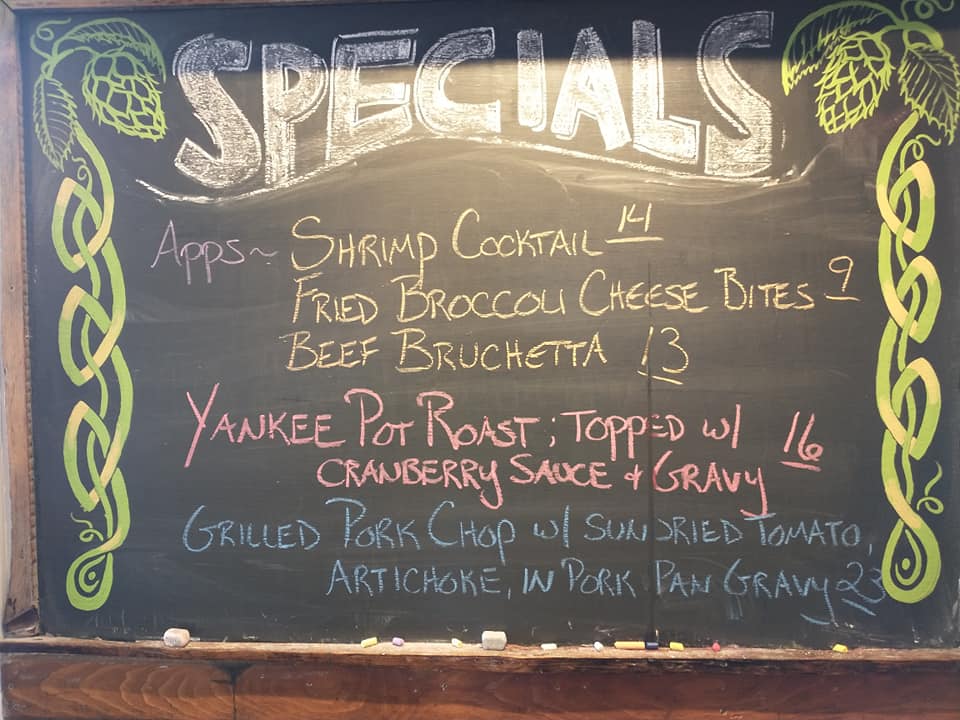 SPECIALS
Apps~ SHRIMP COCKTAIL 14
FRIED BROCCOLI CHEESE BITES 9
BEEF BRUCHETTA 13
YANKEE POT ROAST; TOPPED w/ 16
CRANBERRY SAUCE & GRAVY
GRILLED PORK CHOP w/ SUNDRIED TOMATO,
ARTICHOKE, IN PORK PAN GRAVY 23